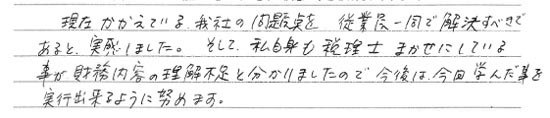 現在かかえている、我社の問題点を従業員一同で解決すべきで
あると、実感しました。そして、私自身も税理士まかせにしている
事が財務内容の理解不足と分かりましたので今後は、今回学んだ事を
実行出来るように努めます。